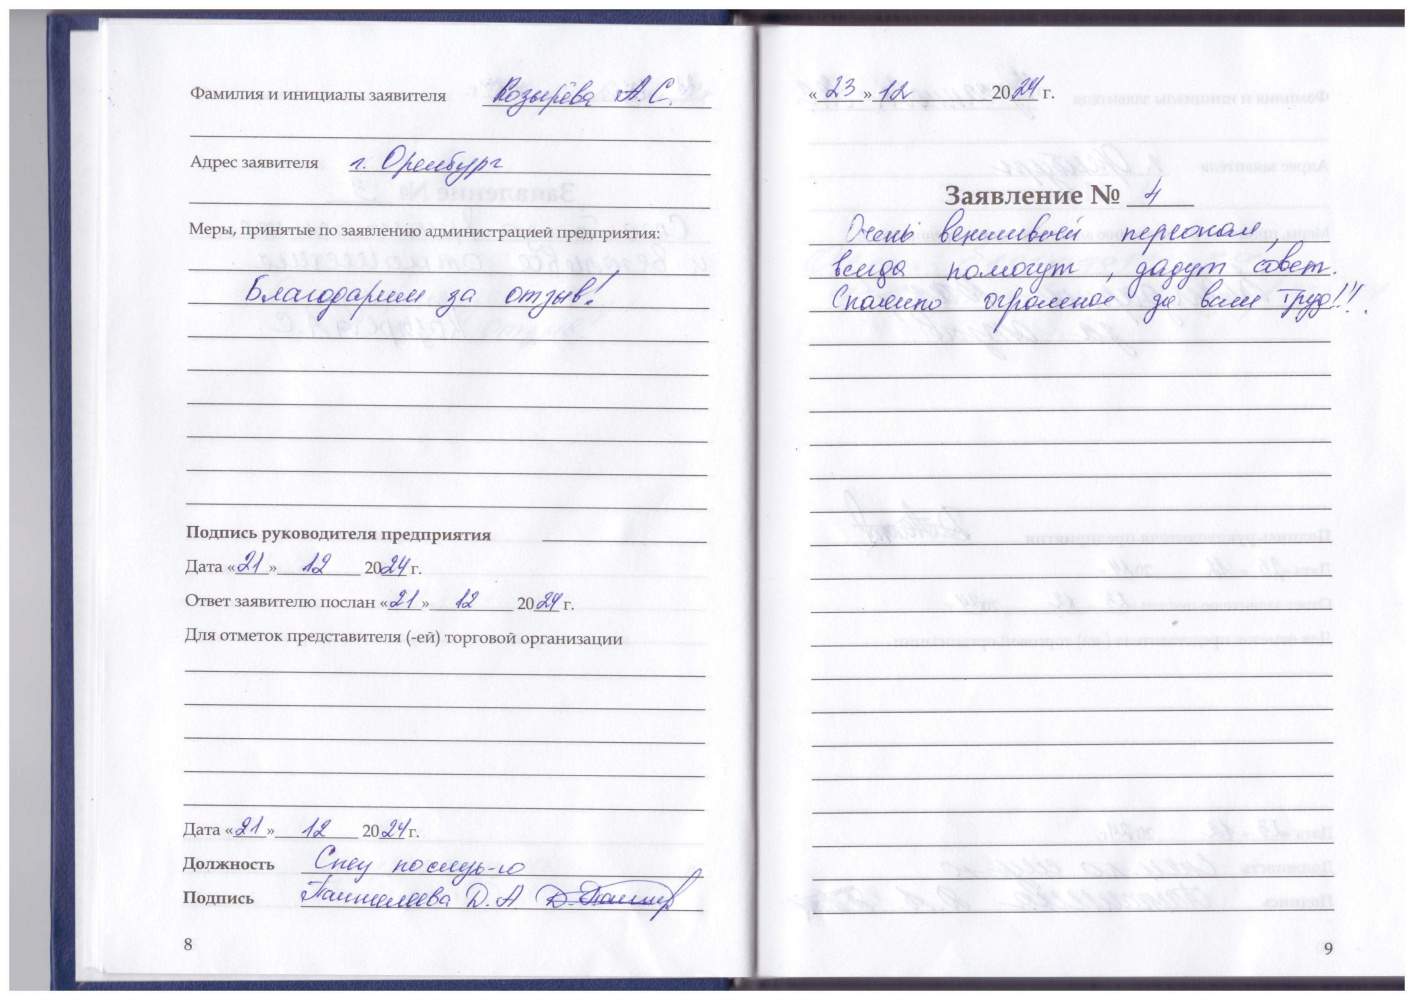 Фамилия и инициалы заявителя Козырева А.С.
Адрес заявителя г. Оренбург
Меры, принятые по заявлению администрацией предприятия:
Благодарим за отзыв!
Подпись руководителя предприятия
Дата «21» 12 2024 г.
Ответ заявителю послан «21» 12 2024 г.
Для отметок представителя (-ей) торговой организации
Дата «21» 12 2024 г.
Должность Спец
Подпись Пантелеева Д.А
8
«23» 12 2024 г.
Заявление № 4
Очень вежливый персонал,
всегда помогут, дадут совет.
Спасибо огромное за ваш труд!!!
9